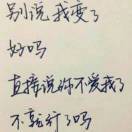 别说我变了
好吗
直接说你不爱我了
不就行了吗